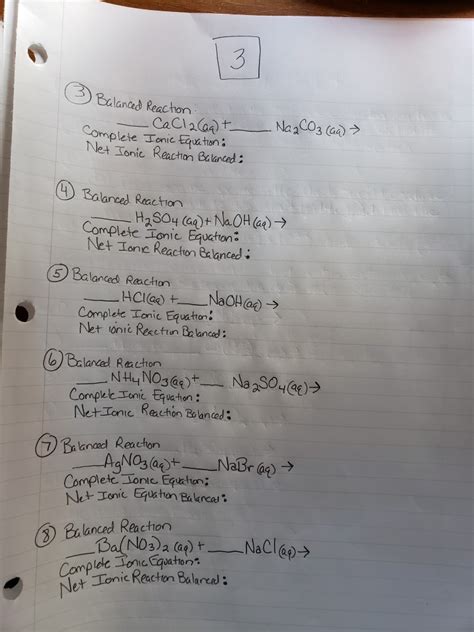 3
③ Balanced Reaction:
___ CaCl2(aq) + ___ Na2CO3(aq) →
Complete Ionic Equation:
Net Ionic Reaction Balanced:
④ Balanced Reaction
___ H2SO4(aq) + NaOH(aq) →
Complete Ionic Equation:
Net Ionic Reaction Balanced:
⑤ Balanced Reaction
___ HCl(aq) + ___ NaOH(aq) →
Complete Ionic Equation:
Net ionic Reaction Balanced:
⑥ Balanced Reaction
___ NH4NO3(aq) + ___ Na2SO4(aq) →
Complete Ionic Equation:
Net Ionic Reaction Balanced:
⑦ Balanced Reaction
___ AgNO3(aq) + ___ NaBr(aq) →
Complete Ionic Equation:
Net Ionic Equation Balanced:
⑧ Balanced Reaction
___ Ba(NO3)2(aq) + ___ NaCl(aq) →
Complete Ionic Equation:
Net Ionic Reaction Balanced: